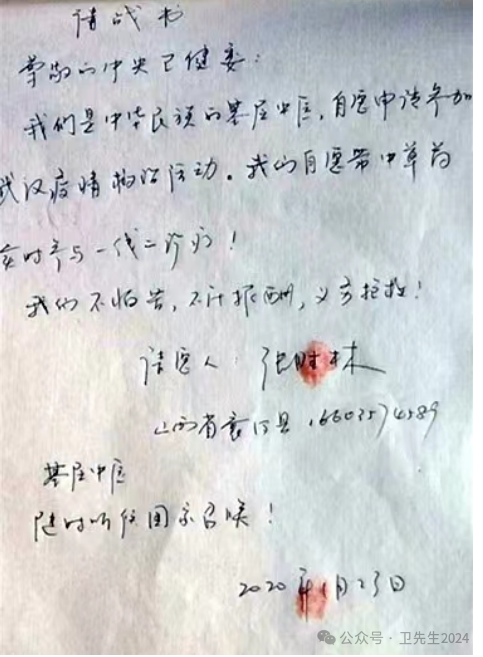 请战书
尊敬的中央卫健委：
我们是中华民族的基层中医，自愿申请参加
武汉疫情物治活动。我们自愿带中草药
实时参与一线工作！
我们不怕苦，不计报酬，义务抢救！
请愿人：张胜林
山西省襄汾县 16603574589
基层中医
随时听从国家召唤！
2020年1月23日
公众号·卫先生2024